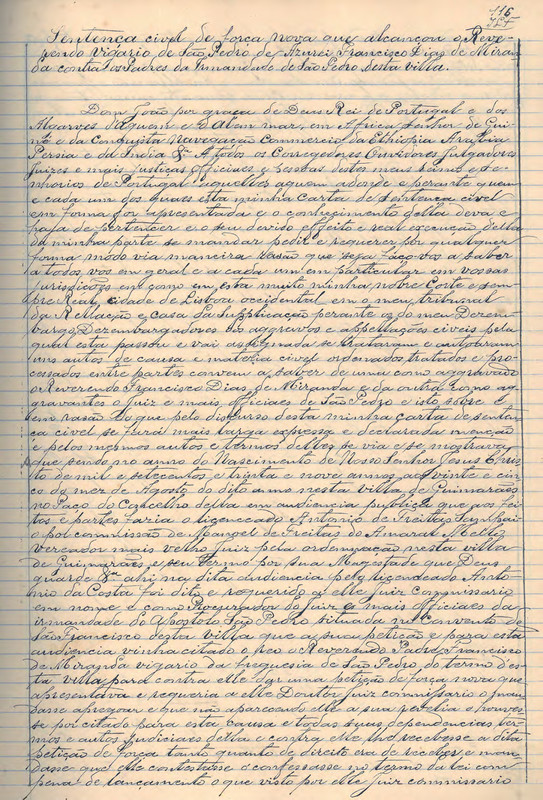 116
Sentença civel de força nova que alcançou o Reve-
rendo Vigario de São Pedro de Azurei Francisco Dias de Miran-
da contra os Padres da Irmandade de São Pedro desta villa.
Dom João por graça de Deus Rei de Portugal e dos
Algarves d'aquem e d'alem mar, em Africa Senhor de Gui-
né e da Conquista Navegação Commercio da Ethiopia Arabia
Persia e da India &ª A todos os Corregedores Ouvidores Julgadores
Juizes e mais Justiças Officiaes e pessoas destes meus Reinos e Se-
nhorios de Portugal aquelles aquem adonde e perante quem
e cada um dos quaes esta minha carta de sentença civel
em forma for apresentada e o conhecimento della deva e
haja de pertencer e o seu devido effeito e real execução della
da minha parte se mandar pedir e requerer por qualquer
forma modo via maneira rasão que seja faço-vos a saber
a todos vos em geral e a cada um em particular em vossas
jurisdicções em como em esta muito minha nobre Corte e sem-
pre Real cidade de Lisboa occidental em o meu tribunal
da Rellação e casa da Supplicação perante os do meu Desem-
bargo Dezembargadores dos aggravos e appellações civeis pela
qual esta passou e vai assignada se trataram e autoaram
uns autos de causa e materia civel ordenados tratados e pro-
cessados entre partes convem a saber de uma como aggravado
o Reverendo Francisco Dias de Miranda e da outra como ag-
gravantes o Juiz e mais officiaes de São Pedro e isto sobre e
em rasão do que pelo discurso desta minha carta de senten-
ça civel se fará mais larga expressa e declarada menção
e pelos mesmos autos e termos delles se via e se mostrava
que sendo no anno do Nascimento de Nosso Senhor Jesus Chris-
to de mil e setecentos e trinta e nove annos aos vinte e cin-
co do mez de Agosto do dito anno nesta villa de Guimarães
no Paço do Concelho della em audiencia publica que aos fei-
tos e partes fazia o licenceado Antonio de Freitas Sampai-
o por commissão de Manoel de Freitas do Amaral Mello
Vereador mais velho juiz pela ordemnação nesta villa
de Guimarães e seu termo por sua Magestade que Deus
guarde &ª ahi na dita audiencia pelo licenceado Anto-
nio da Costa foi dito e requerido a elle juiz commissario
em nome e como Procurador do juiz e mais officiaes da
irmandade do Apostolo São Pedro situada no Convento de
São Francisco desta villa que a sua petição e para esta
audiencia vinha citado o reo o Reverendo Padre Francisco
de Miranda vigario da freguesia de São Pedro do termo d'es-
ta villa para contra elle dar uma petição de força nova que
apresentava e requeria a elle Doutor juiz commissario o man-
dasse apregoar e que não aparecendo elle a sua revelia o houves-
se por citado para esta causa e todas suas dependencias ter-
mos e autos judiciaes della e contra elle lhe recebesse a dita
petição de força tanto quanto de direito era de receber e man-
dasse que elle contestasse o confessasse no termo da lei com
pena de lançamento o que visto por elle juiz commissario